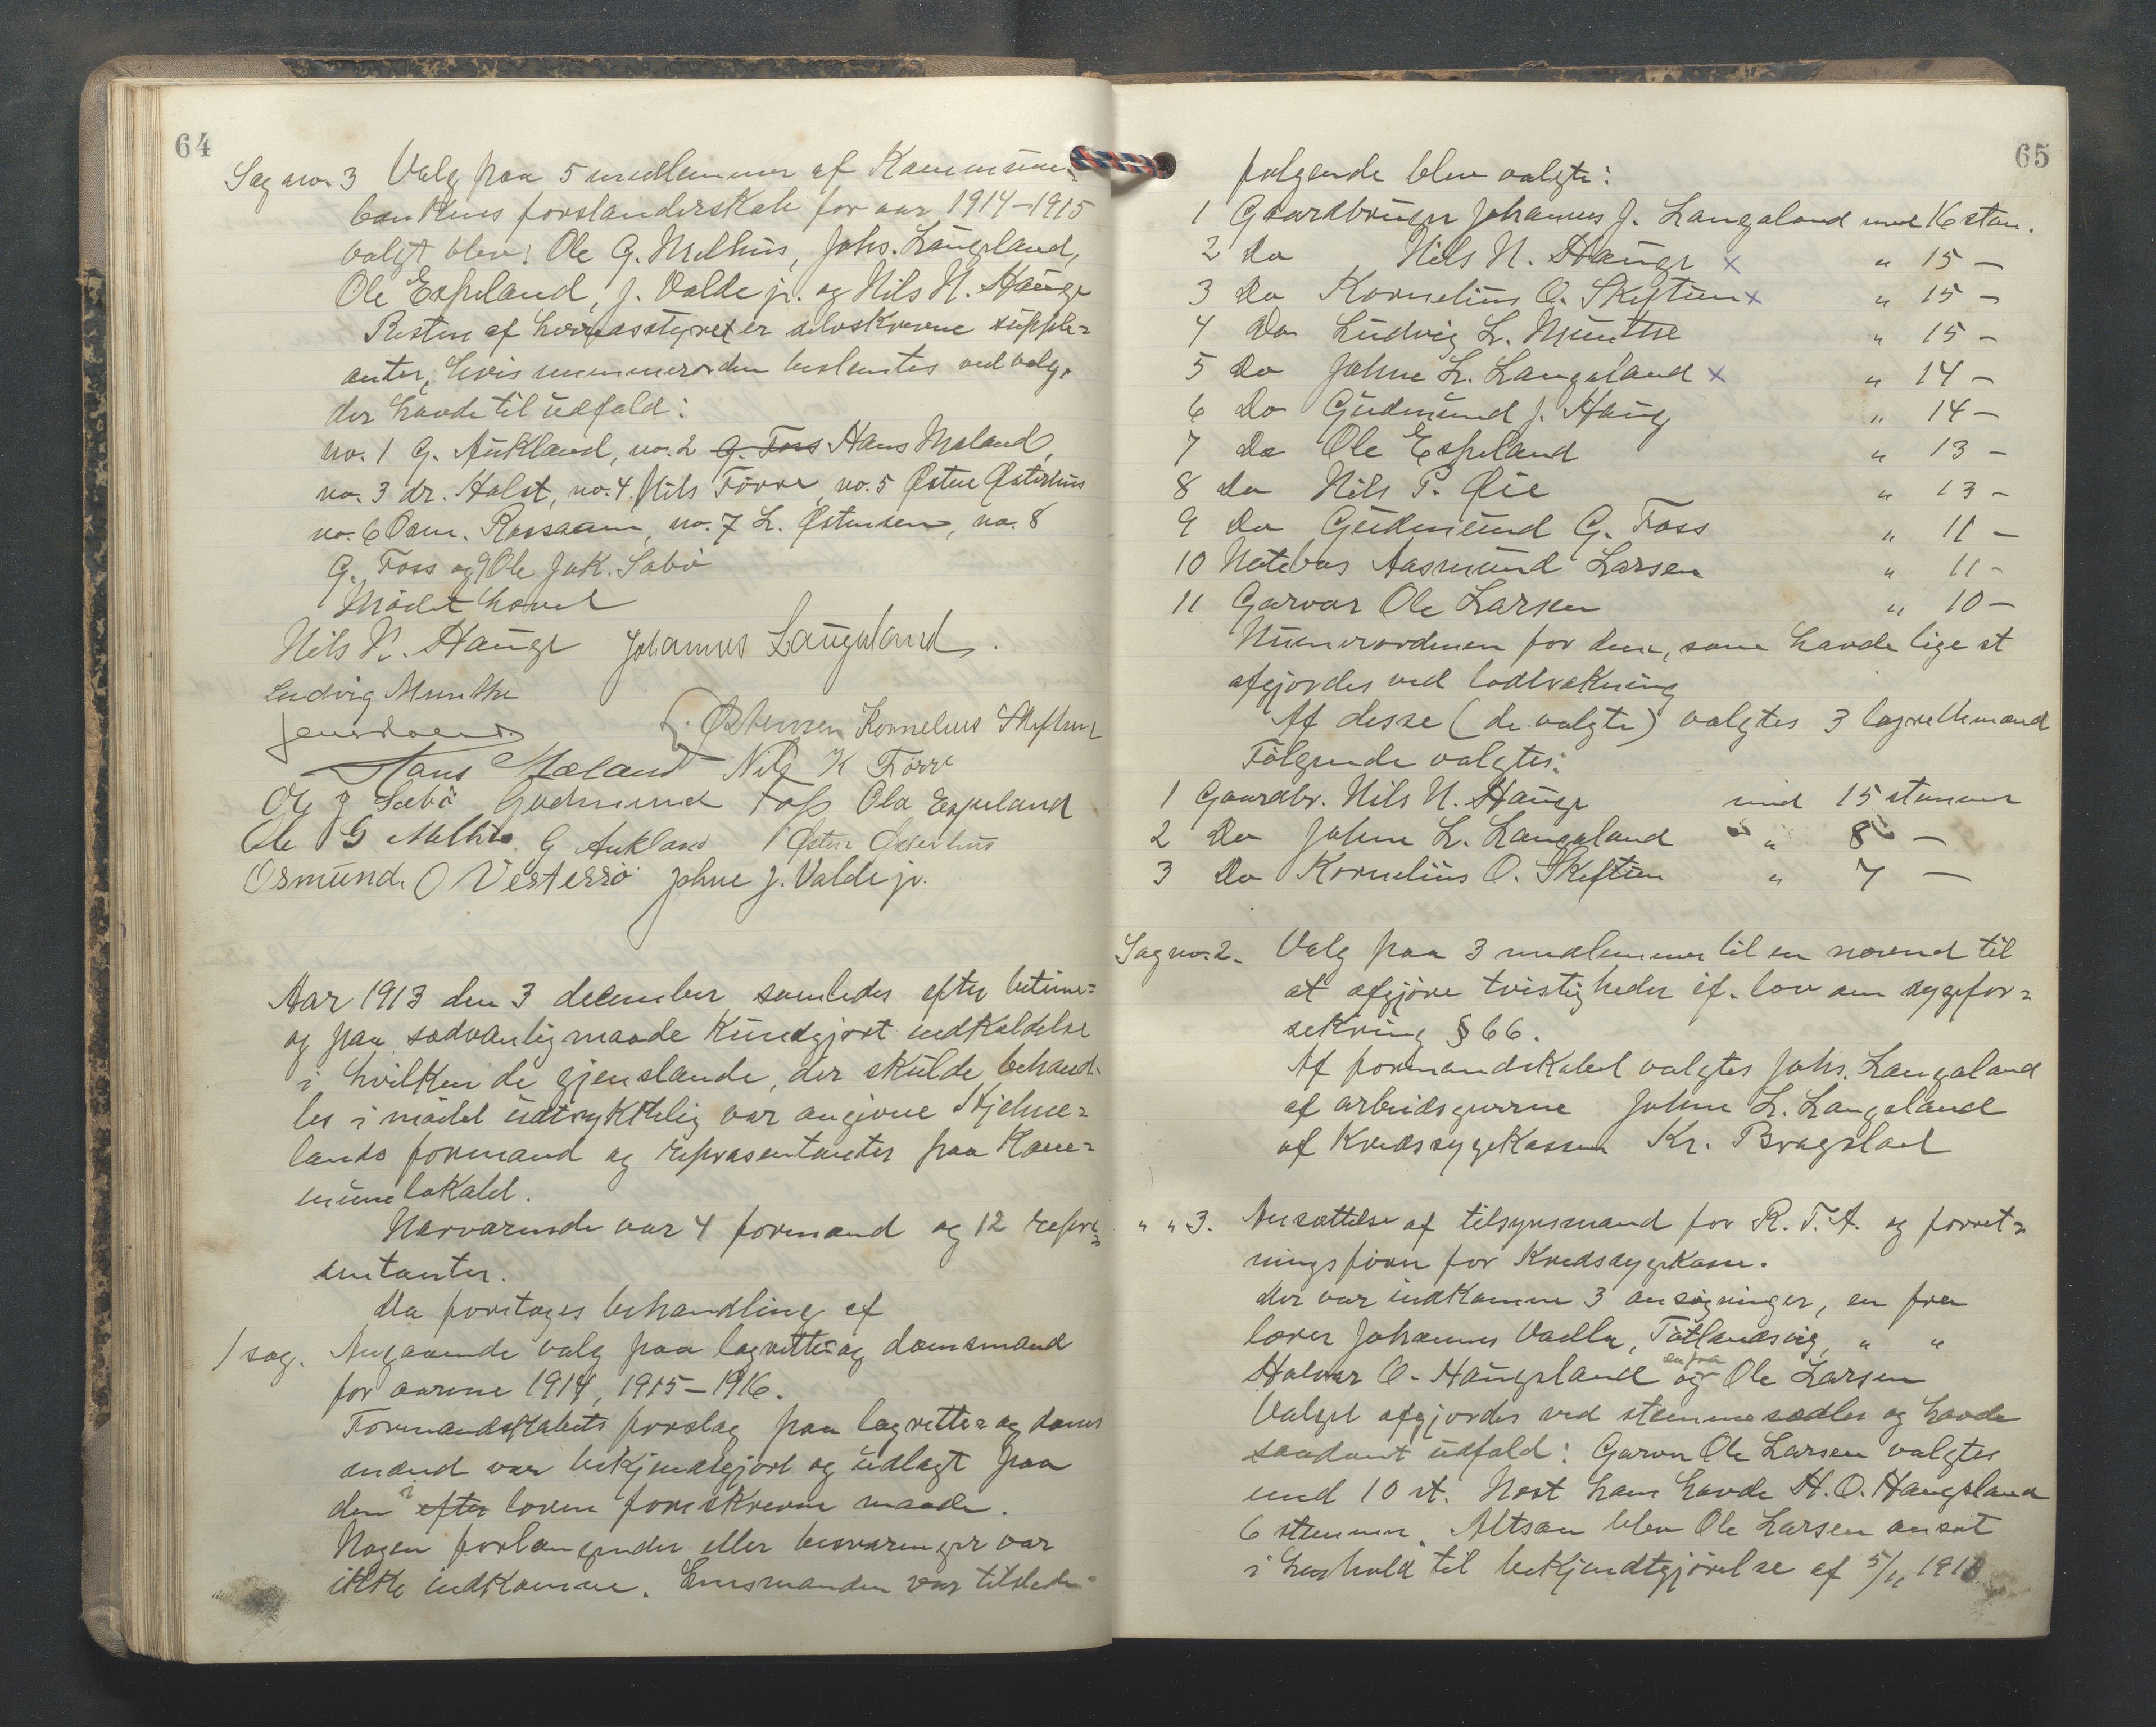 64
Sag no. 3 Valg paa 5 medlemmer af Kommune-
bankens forstanderskab for aar 1914-1915
valgt blev: Ole G. Melhus, Johs. Langeland,
Ole Espeland, J. Valde jr. og Nils N. Hauge
Resten af herredsstyret er selvskrevne supple=
anter, hvis nummerorden bestemtes ved valg,
der havde til udfald:
no. 1 G. Aukland, no. 2 G. Foss Hans Mæland,
no. 3 dr. Holst, no. 4 Nils Förre, no. 5 Østen Østerhus
no. 6 Osm. no. 7 L. Østensen, no. 8
G. Foss og 9 Ole Jak. Sæbö
Mödet hævet
Nils N. Hauge Johannes Langeland.
Ludvig Munthe
L. Østensen Kornelius Skeftun
Hans Mæland Nils K Förre
Ole J Sæbö Gudmund Foss Ola Espeland
Ole G Melhus. G Aukland Østen Østerhus
Osmund. O Vestersö Johne J. Valde jr.
Aar 1913 den 3 december samledes efter betime=
og paa sædvanlig maade kundgjort indkaldelse
i hvilken de gjenstande, der skulde behand-
les i mödet udtrykkelig var angivne Hjelme=
lands formænd og repræsentanter paa Kom=
munelokalet.
Nærværende var 4 formænd og 12 repræ=
sentanter.
Da foretages behandling af
1 sag. Angaaende valg paa lagrette= og domsmænd
for aarene 1914, 1915-1916.
Formandskabets forslag paa lagrette= og doms
mænd var bekjendtgjort og udlagt paa
den i efter loven foreskrevne maade.
Nogen forlangender eller besværinger var
ikke indkomne. Lensmanden var tilstede
65
fölgende blev valgte:
1 Gaardbruger Johannes J. Langeland med 16 stem.
2 Do Nils N. Hauge x " 15 -
3 Do Kornelius O. Skeftun x " 15 -
4 Do Ludvig L. Munthe " 15 -
5 Do Johne L. Langeland x " 14 -
6 Do Gudmund J. Haug " 14 -
7 Do Ole Espeland " 13 -
8 Do Nils P. Øie " 13 -
9 Do Gudmund G. Foss " 11 -
10 Notebas Aasmund Larsen " 11 -
11 Garver Ole Larsen " 10 -
Numerordenen for dem, som havde lige st
afgjordes ved lodtrækning
Af disse (de valgte) valgtes 3 lagrettemænd
Fölgende valgtes:
1 Gaardbr. Nils N. Hauge med 15 stemmer
2 Do Johne L. Langeland " 8 -
3 Do Kornelius O. Skeftun " 7 -
Sag no. 2. Valg paa 3 medlemmer til en nævnd til
at afgjöre tvistigheder if. lov om sygefor=
sikring § 66.
Af formandskabet valgtes Johs. Langeland
af arbeidsgiverne Johne L. Langeland
af Kredssygekassen Kr. Bragstad
" " 3. Ansættelse af tilsynsmand for R. T. A. og forret=
ningsförer for Kredssygekasse.
Der var indkomne 3 ansögninger, en fra
lærer Johannes Vadla, Tötlandsvig, " "
Halvar O. Haugsland og en fra Ole Larsen
Valget afgjordes ved stemmesedler og havde
saadant udfald: Garver Ole Larsen valgtes
med 10 st. Næst ham havde H. O. Haugsland
6 stemmer. Altsaa blev Ole Larsen ansat
i henhold til bekjendtgjörelse af 5/11 1913